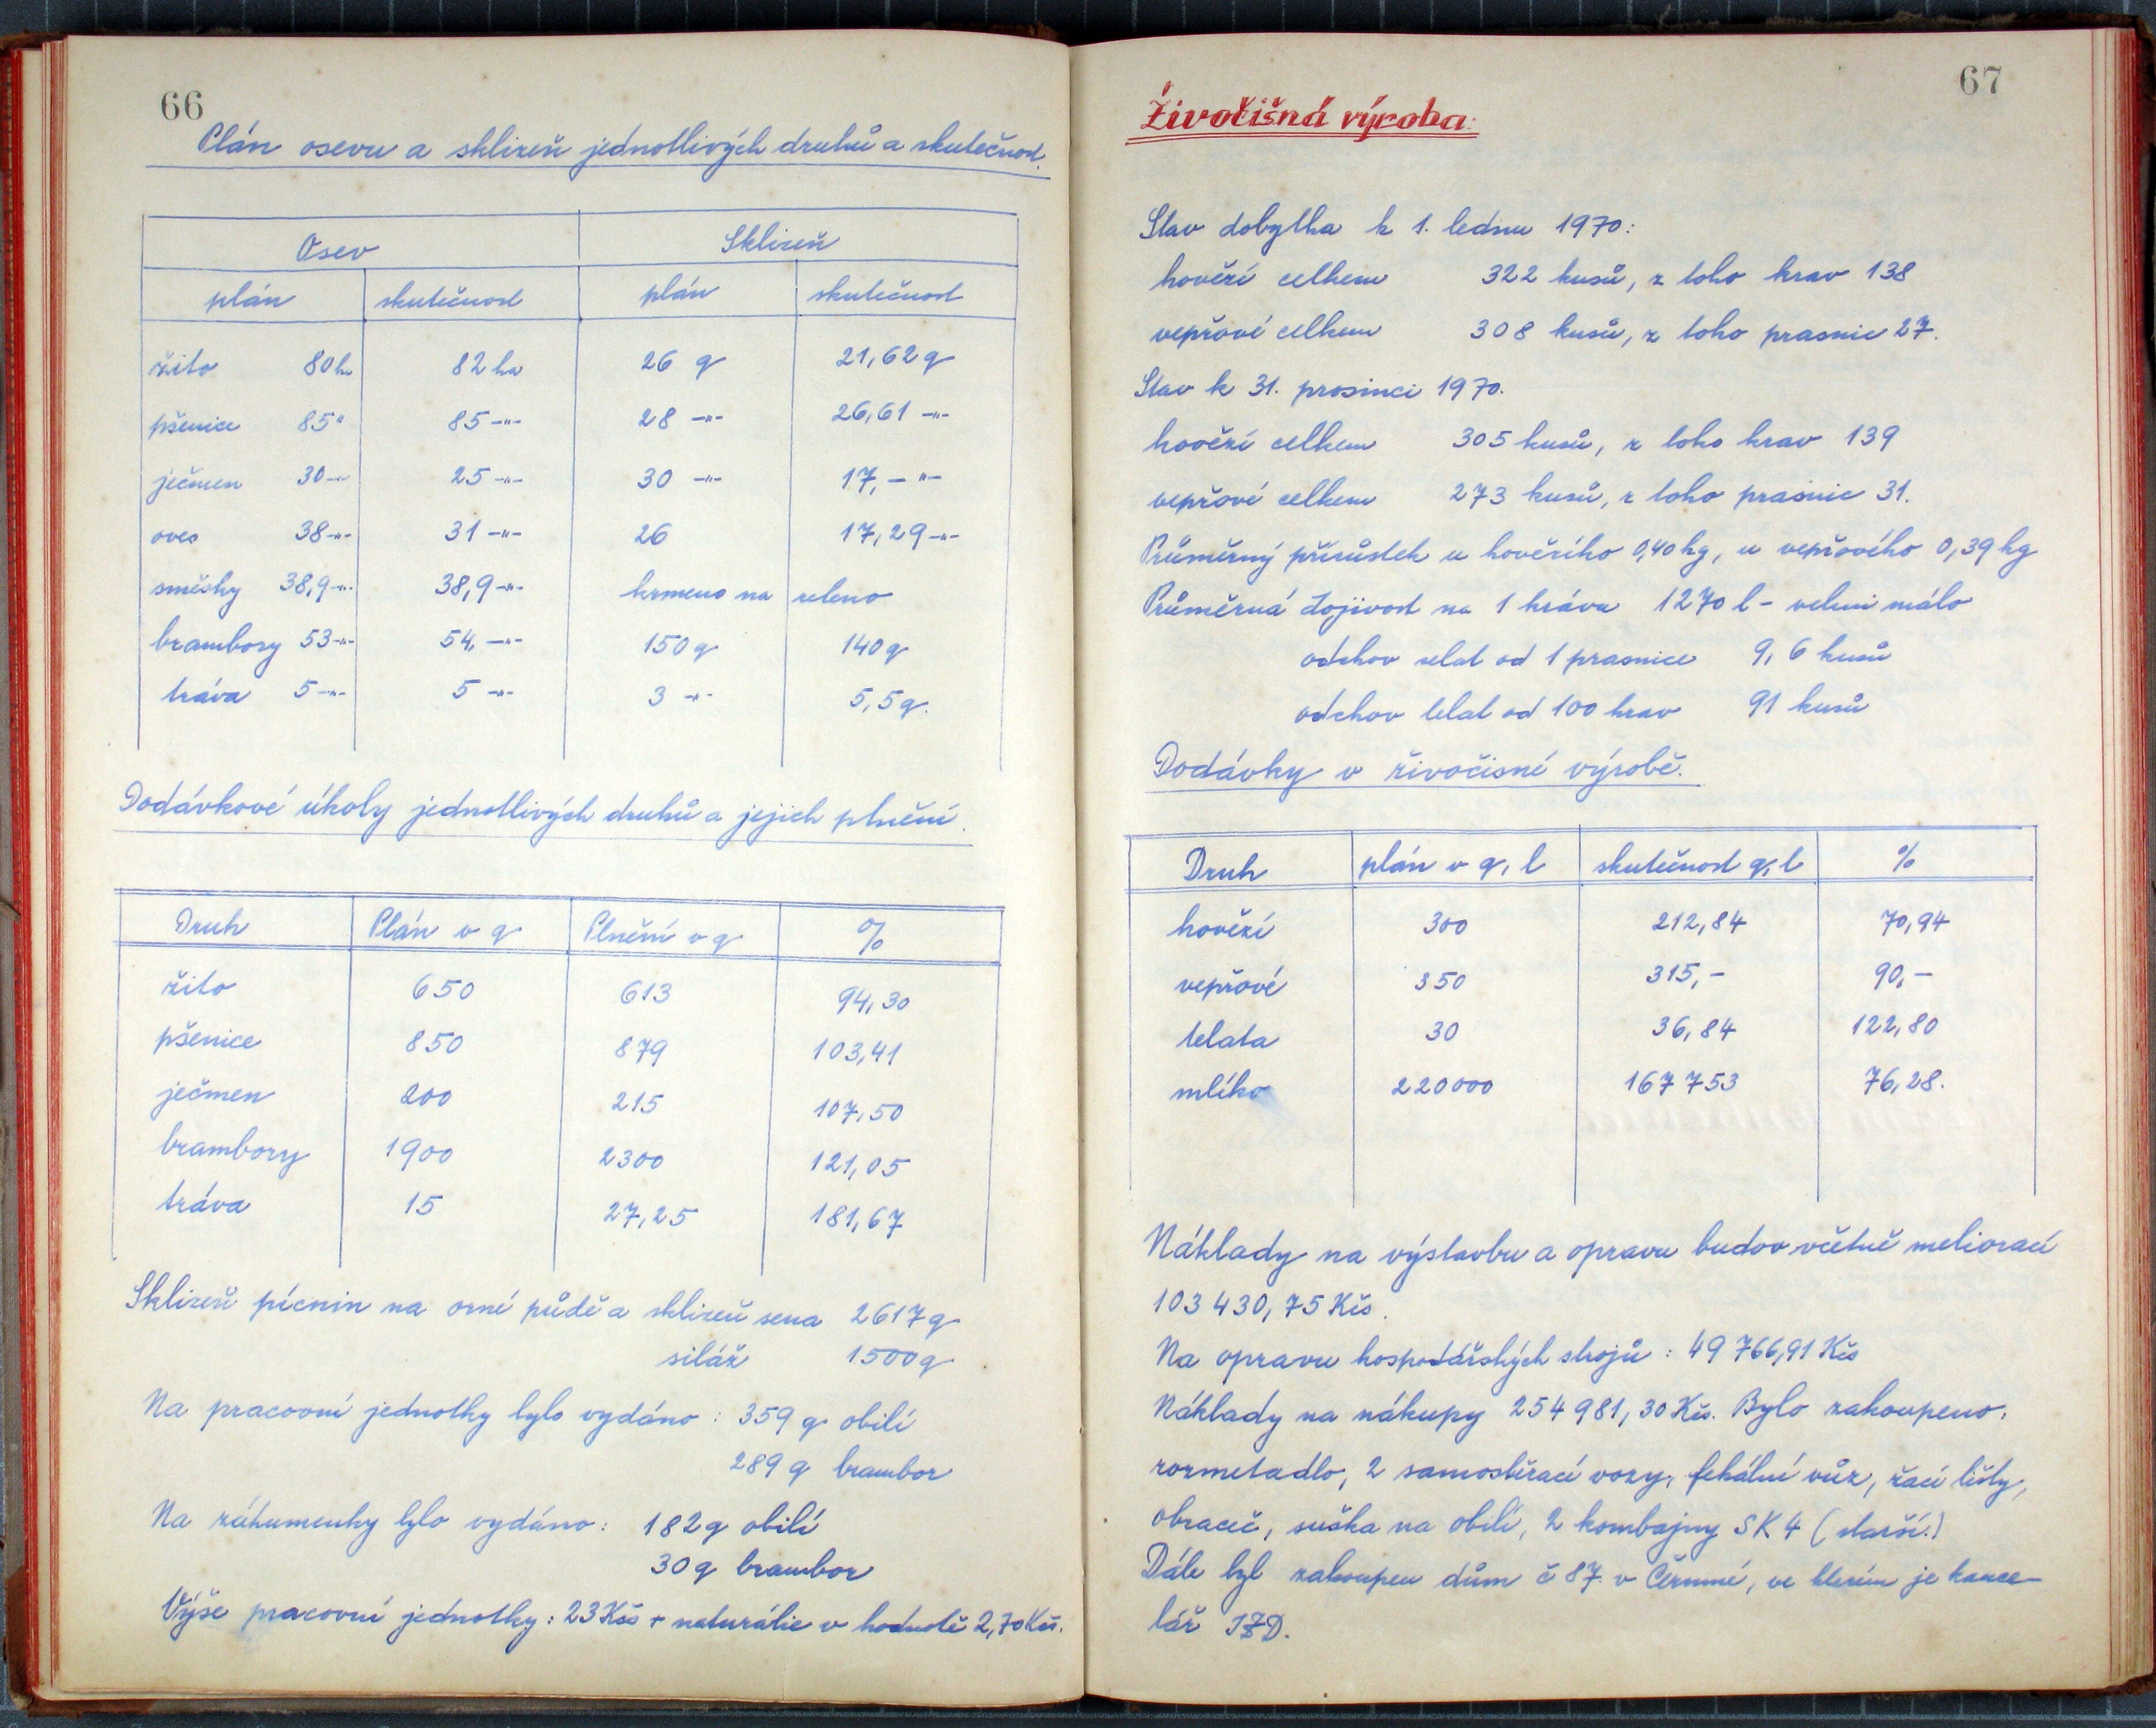 66
Plán osevu a sklizeň jednotlivých druhů a skutečnost.
Osev Sklizeň
plán skutečnost plán skutečnost
žito 80 ha 82 ha 26 q 21,62 q
pšenice 85 " 85 -"- 28 -"- 26,61 -"-
ječmen 30 -"- 25 -"- 30 -"- 17,- -"-
oves 38 -"- 31 -"- 26 17,29 -"-
směsky 38,9 -"- 38,9 -"- krmeno na zeleno
brambory 53 -"- 54,-"- 150 q 140 q
tráva 5 -"- 5 -"- 3 -"- 5,5 q.
Dodávkové úkoly jednotlivých druhů a jejich plnění.
Druh Plán v q Plnění v q %
žito 650 613 94,30
pšenice 850 879 103,41
ječmen 200 215 107,50
brambory 1900 2300 121,05
tráva 15 27,25 181,67
Sklizeň pícnin na orné půdě a sklizeň sena 2617 q
siláž 1500 q
Na pracovní jednotky bylo vydáno : 359 q obilí
289 q brambor
Na záhumenky bylo vydáno : 182 q obilí
30 q brambor
Výše pracovní jednotky : 23 Kčs + naturálie v hodnotě 2,70 Kčs.
67
Živočišná výroba:
Stav dobytka k 1. lednu 1970:
hovězí celkem 322 kusů, z toho krav 138
vepřové celkem 308 kusů, z toho prasnic 27.
Stav k 31. prosinci 1970.
hovězí celkem 305 kusů, z toho krav 139
vepřové celkem 273 kusů, z toho prasnic 31.
Průměrný přírůstek u hovězího 0,40 kg, u vepřového 0,39 kg
Průměrná dojivost na 1 krávu 1270 l - velmi málo
odchov selat od 1 prasnice 9,6 kusů
odchov telat od 100 krav 91 kusů
Dodávky v živočisné výrobě.
Druh plán v q, l skutečnost q, l %
hovězí 300 212,84 70,94
vepřové 350 315,- 90,-
telata 30 36,84 122,80
mlíko 220000 167 753 76,28.
Náklady na výstavbu a opravu budov včetně meliorací
103 430,75 Kčs.
Na opravu hospodářských strojů : 49 766,91 Kčs
Náklady na nákupy 254 981,30 Kčs. Bylo zakoupeno.
rozmetadlo, 2 samosběrací vozy, fekální vůz, žací lišty,
obraceč, suška na obilí, 2 kombajny SK 4 (starší.)
Dále byl zakoupen dům č 87. v Čermné, ve kterém je kance-
lář JZD.